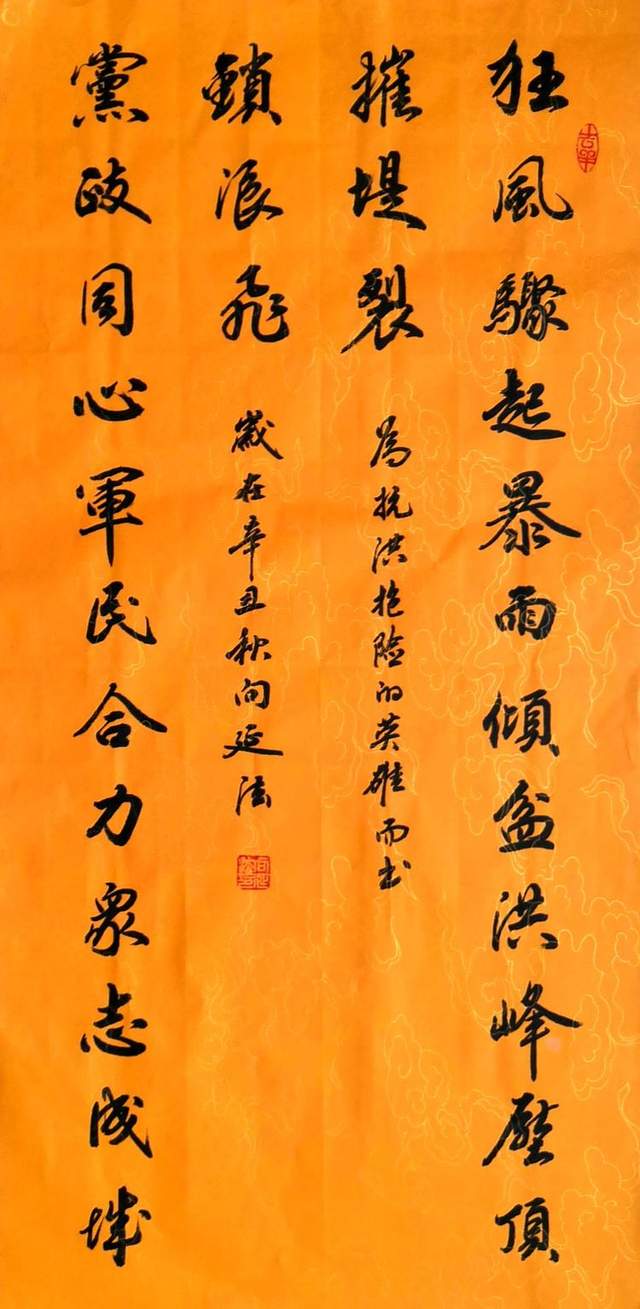 狂風驟起暴雨傾盆洪峰壓頂
摧堤裂
為抗洪抢险的英雄而书
黨政同心軍民合力眾志成城
鎖浪飛
歲在辛丑秋向延法